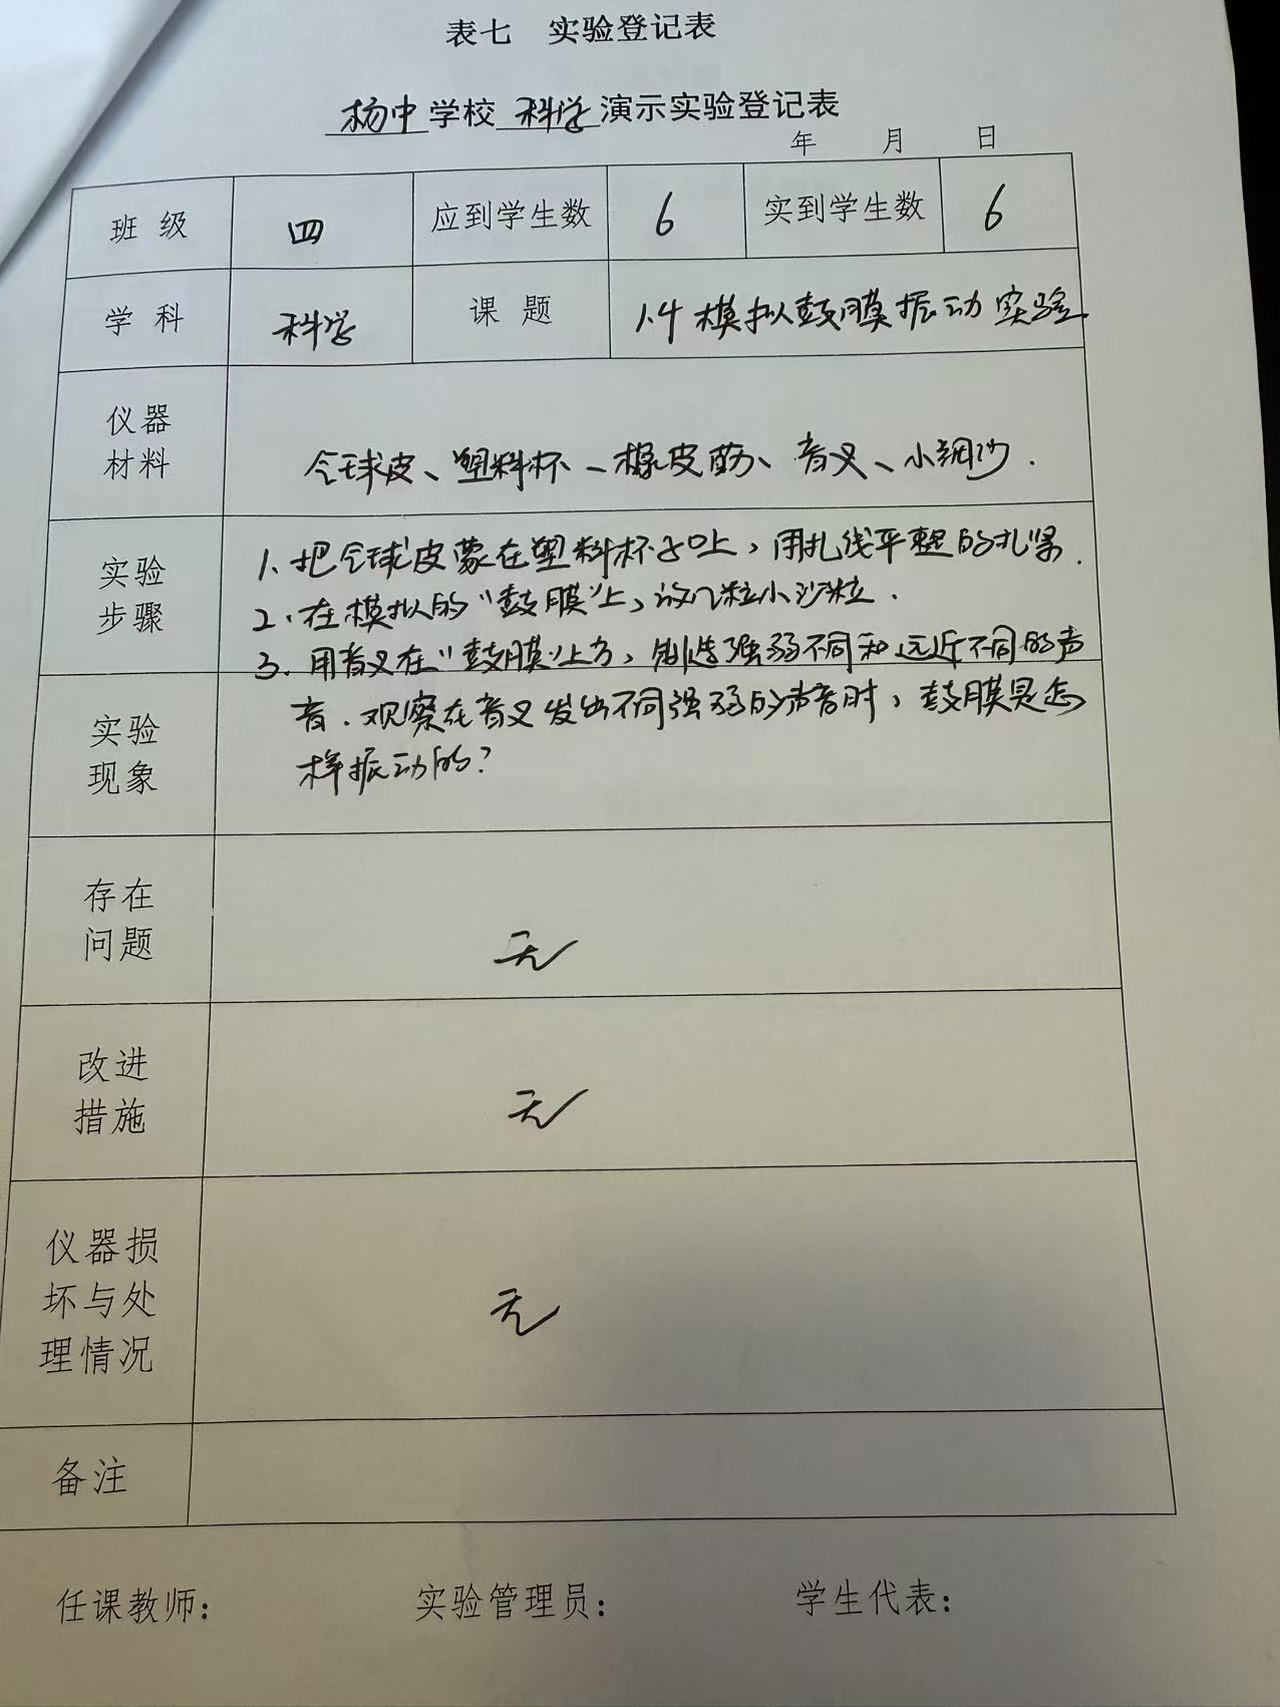 表七 实验登记表
杨中学校 科学演示实验登记表
年 月 日
班 级 四 应到学生数 6 实到学生数 6
学 科 科学 课 题 1.4 模拟鼓膜振动实验
仪器
材料
球皮、塑料杯、橡皮筋、音叉、小细沙.
实验
步骤
1. 把球皮蒙在塑料杯口上，用扎线平整的扎紧.
2. 在模拟的“鼓膜”上，放几粒小沙粒.
3. 用音叉在“鼓膜”上方，制造强弱不同和远近不同的声
实验
现象
音. 观察在音叉发出不同强弱的声音时，鼓膜是怎
样振动的?
存在
问题
无
改进
措施
无
仪器损
坏与处
理情况
无
备注
任课教师： 实验管理员： 学生代表：